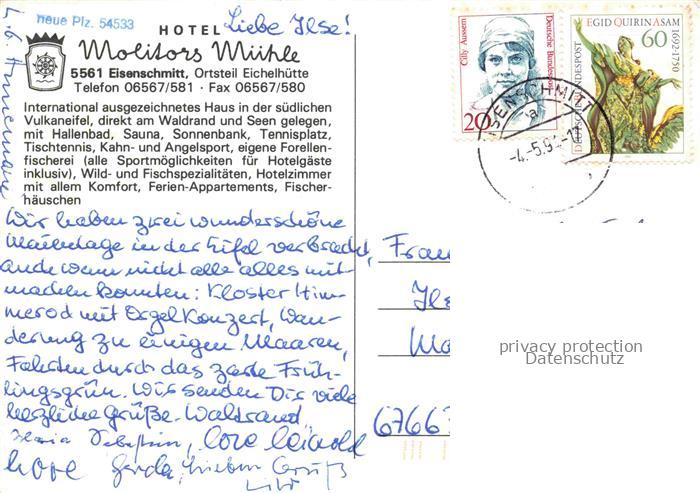 neue Plz. 54533
HOTEL
Liebe Ilse!
Molitors Mühle
5561 Eisenschmitt, Ortsteil Eichelhütte
Telefon 06567/581 · Fax 06567/580
International ausgezeichnetes Haus in der südlichen
Vulkaneifel, direkt am Waldrand und Seen gelegen,
mit Hallenbad, Sauna, Sonnenbank, Tennisplatz,
Tischtennis, Kahn- und Angelsport, eigene Forellen-
fischerei (alle Sportmöglichkeiten für Hotelgäste
inklusiv), Wild- und Fischspezialitäten, Hotelzimmer
mit allem Komfort, Ferien-Appartements, Fischer-
häuschen
Wir haben zwei wunderschöne
Maientage in der Eifel verbracht,
auch wenn nicht alle alles mit-
machen konnten: Kloster Him-
merod mit Orgelkonzert, Wan-
derung zu einigen Maaren,
Fahrten durch das zarte Früh-
lingsgrün. Wir senden Dir viele
herzliche Grüße. Waltraud
Lore
Gerda, lieben Gruß
Cilly Aussem
Deutsche Bundespost
20
EGID QUIRIN ASAM
1692-1750
60
DEUTSCHE BUNDESPOST
EISENSCHMITT
a
Frau
Ilse
67663
privacy protection
Datenschutz